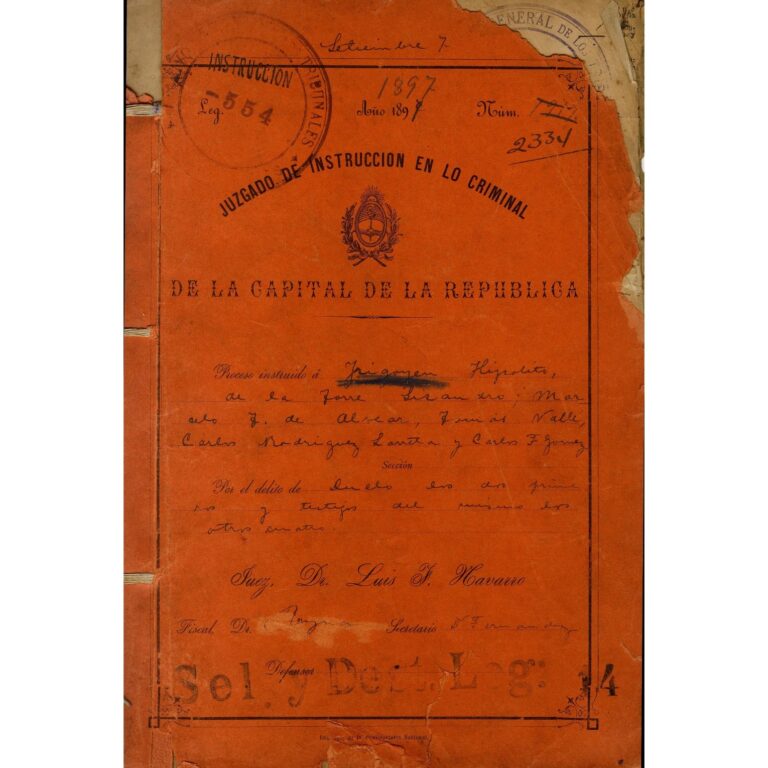 Setiembre 7
GENERAL DE LOS
INSTRUCCION
TRIBUNALES
-554
Leg.
1897
Año 1897
Núm.
2334
JUZGADO DE INSTRUCCION EN LO CRIMINAL
DE LA CAPITAL DE LA REPUBLICA
Proceso instruido á Irigoyen Hipolito,
de la Torre Lisandro; Mar
celo T. de Alvear, Tomás Valle,
Carlos Rodriguez Larreta y Carlos F Gomez
Sección
Por el delito de duelo los dos prime
ros y testigos del mismo los
otros cuatro.
Juez, Dr. Luis F. Navarro
Fiscal, Dr. Secretario Fernandez
Defensor
Sel. y Dest. Leg: 14